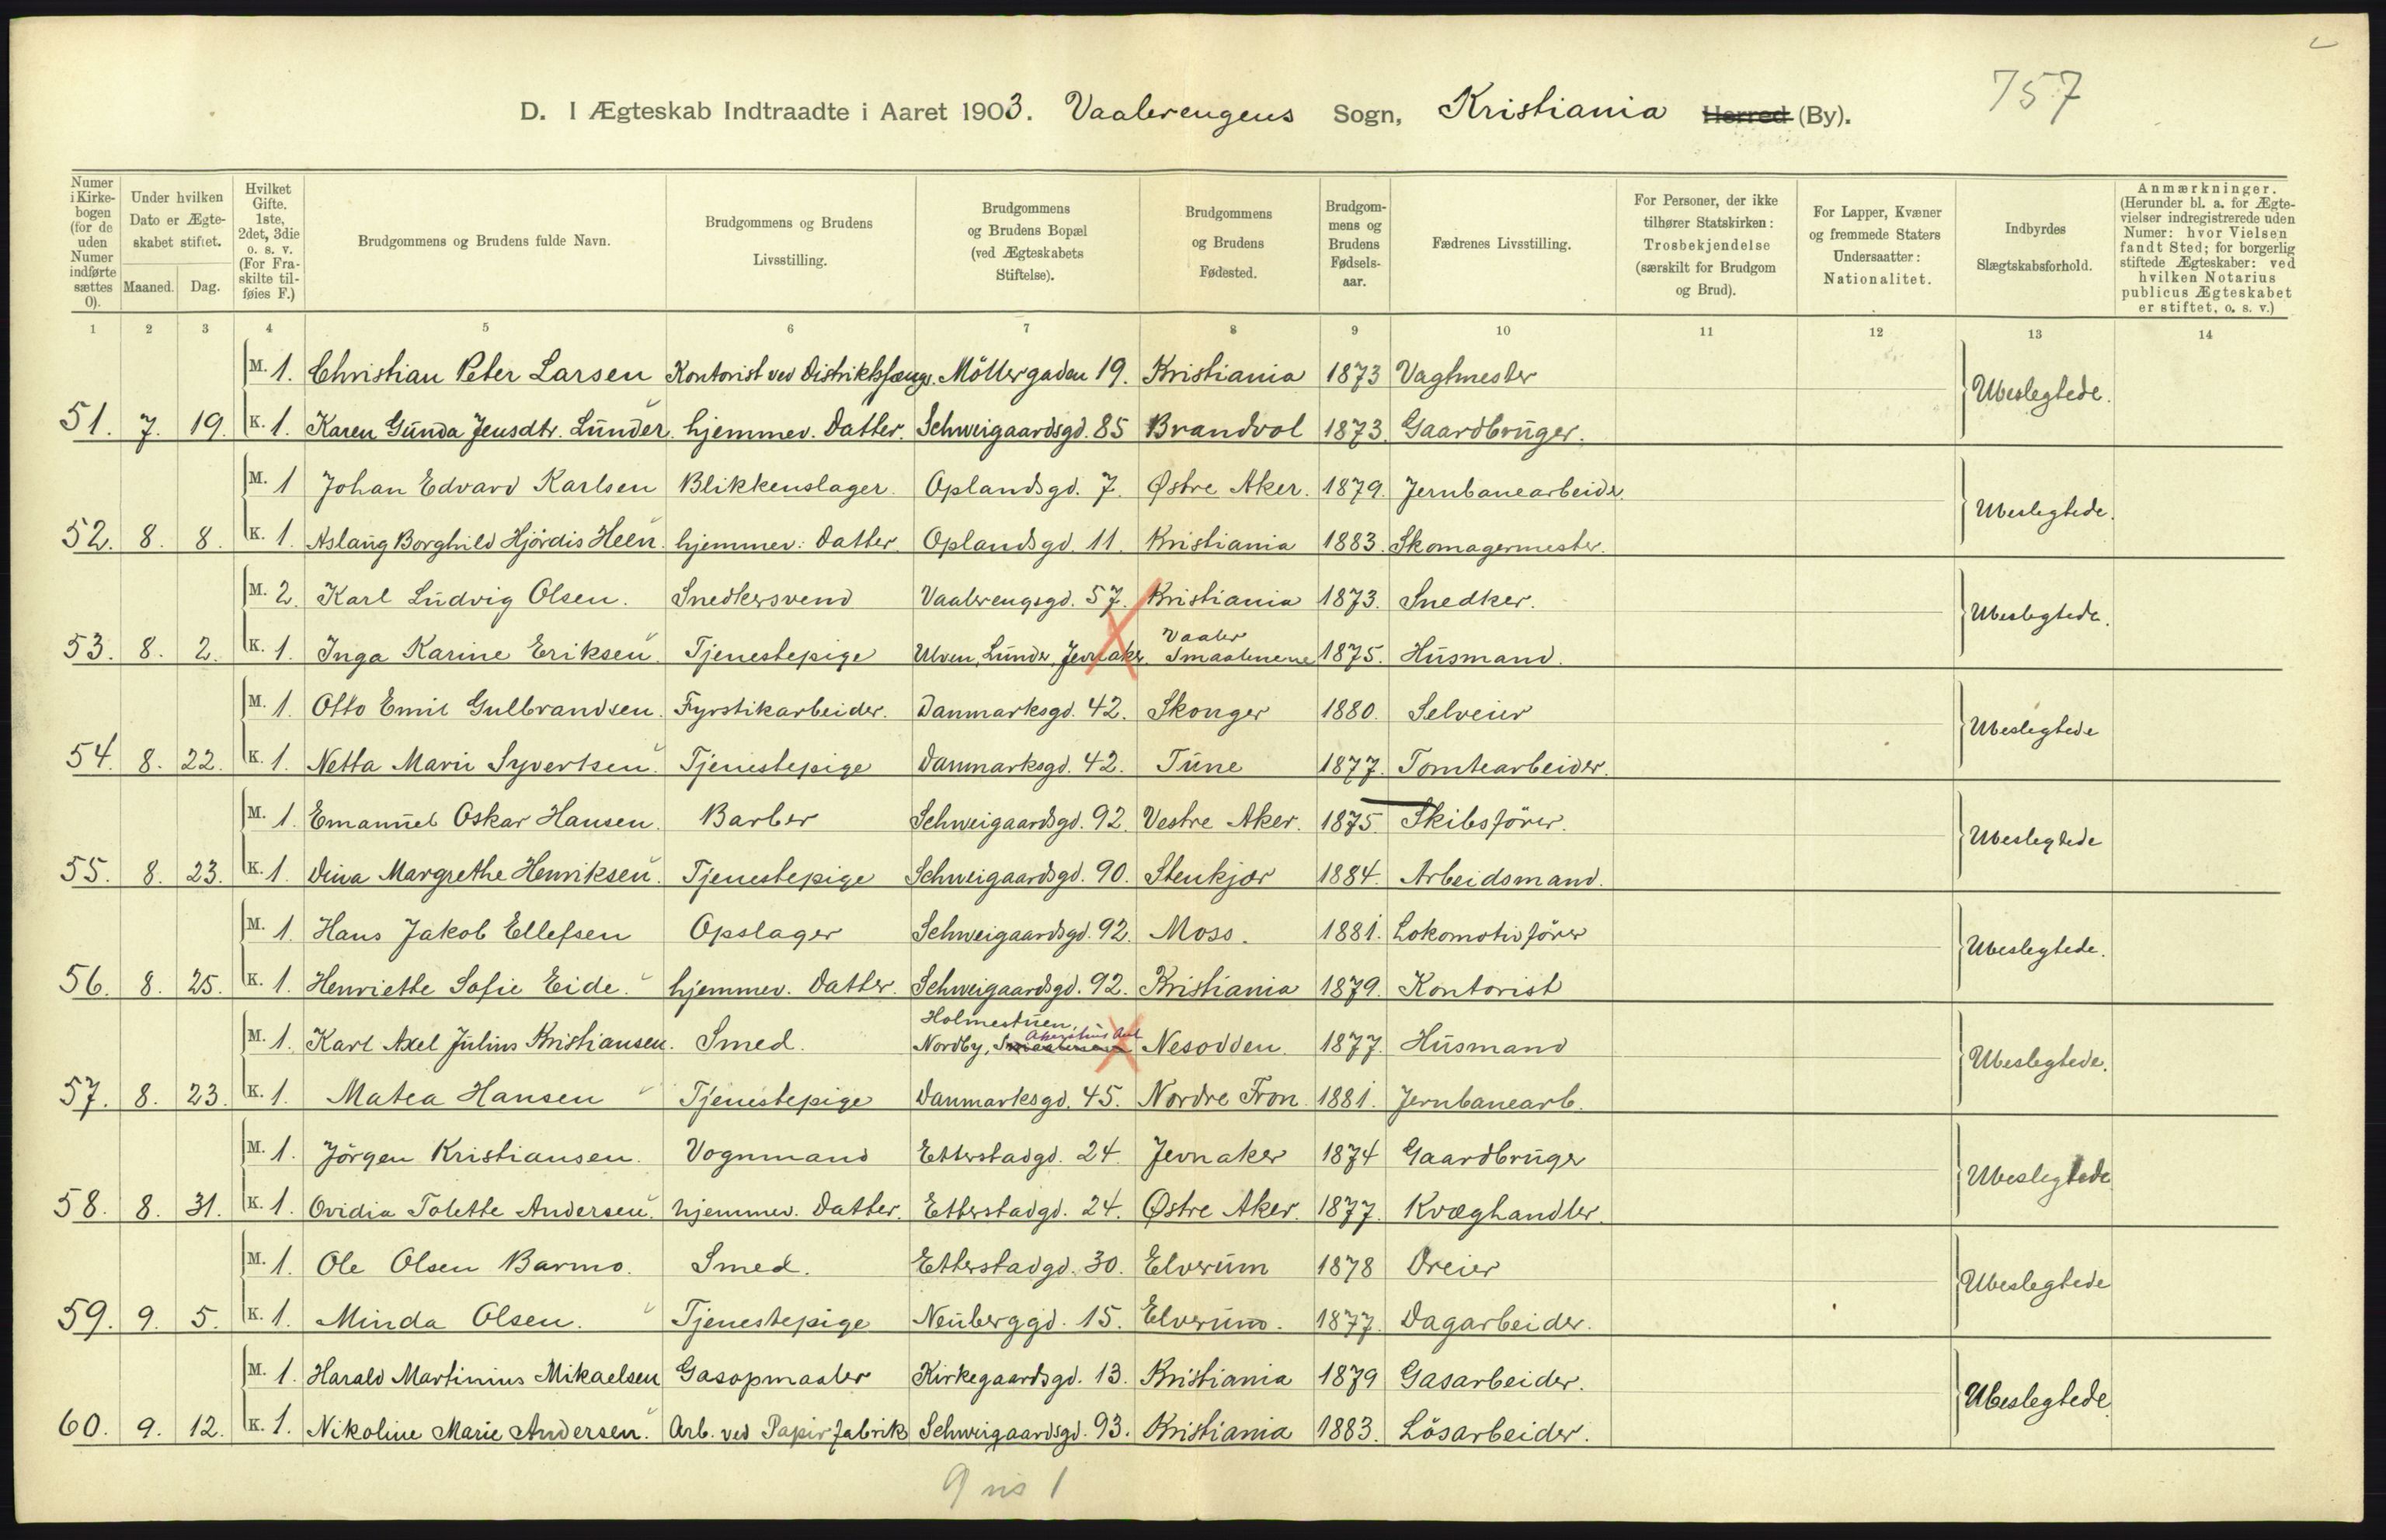 757
D. I Ægteskab Indtraadte i Aaret 1903. Vaalerengens Sogn, Kristiania Herred (By).
Numer i Kirkebogen (for de uden Numer indførte sættes 0).
Under hvilken Dato er Ægteskabet stiftet.
Maaned. Dag.
Hvilket Gifte. 1ste, 2det, 3die o. s. v. (For Fraskilte tilføies F.)
Brudgommens og Brudens fulde Navn.
Brudgommens og Brudens Livsstilling.
Brudgommens og Brudens Bopæl (ved Ægteskabets Stiftelse).
Brudgommens og Brudens Fødested.
Brudgommens og Brudens Fødselsaar.
Fædrenes Livsstilling.
For Personer, der ikke tilhører Statskirken: Trosbekjendelse (særskilt for Brudgom og Brud).
For Lapper, Kvæner og fremmede Staters Undersaatter: Nationalitet.
Indbyrdes Slægtskabsforhold.
Anmærkninger. (Herunder bl. a. for Ægtevielser indregistrerede uden Numer: hvor Vielsen fandt Sted; for borgerlig stiftede Ægteskaber: ved hvilken Notarius publicus Ægteskabet er stiftet, o. s. v.)
1 2 3 4 5 6 7 8 9 10 11 12 13 14
M. 1. Christian Peter Larsen Kontorist ved Distriktsfængs. Möllergaden 19. Kristiania 1873 Vagtmester
Ubeslegtede.
51. 7. 19. K. 1. Karen Gunda Jensdtr. Lunder. hjemmev. Datter. Schweigaardsgd. 85 Brandvol 1873. Gaardbruger.
M. 1 Johan Edvard Karlsen Blikkenslager. Oplandsgd. 7. Østre Aker. 1879. Jernbanearbeider.
Ubeslegtede.
52. 8. 8. K. 1. Aslaug Borghild Hjördis Heen. hjemmev: Datter. Oplandsgd. 11. Kristiania 1883. Skomagermester.
M. 2. Karl Ludvig Olsen. Snedkersvend Vaalerengsgd. 57. Kristiania 1873. Snedker.
Ubeslegtede.
53. 8. 2. K. 1. Inga Karine Eriksen. Tjenestepige Ulven, Lunder, Jevnaker. Vaaler Smaalenene 1875. Husmand.
M. 1. Otto Emil Gulbrandsen. Fyrstikarbeider. Danmarksgd. 42. Skonger 1880. Selveier
Ubeslegtede
54. 8. 22. K. 1. Netta Marie Syvertsen. Tjenestepige Danmarksgd. 42. Tune 1877. Tomtearbeider.
M. 1. Emanuel Oskar Hansen. Barber Schweigaardsgd. 92. Vestre Aker. 1875. Skibsförer.
Ubeslegtede
55. 8. 23. K. 1. Dina Margrethe Henriksen. Tjenestepige Schweigaardsgd. 90. Stenkjær 1884. Arbeidsmand.
M. 1. Hans Jakob Ellefsen Opslager Schweigaardsgd. 92. Moss. 1881. Lokomotivförer
Ubeslegtede.
56. 8. 25. K. 1. Henriette Sofie Eide. hjemmev. Datter. Schweigaardsgd. 92. Kristiania 1879. Kontorist
Holmestuen, Akershus Amt
M. 1. Karl Axel Julius Kristiansen. Smed. Nordby, Smaalenene Nesodden. 1877. Husmand
Ubeslegtede.
57. 8. 23. K. 1. Matea Hansen Tjenestepige Danmarksgd. 45. Nordre Fron. 1881. Jernbanearb.
M. 1. Jörgen Kristiansen. Vognmand Etterstadgd. 24. Jevnaker 1874 Gaardbruger
Ubeslegtede
58. 8. 31. K. 1. Ovidia Tolette Andersen. hjemmev. Datter. Etterstadgd. 24. Østre Aker. 1877. Kvæghandler.
M. 1. Ole Olsen Barmo. Smed. Etterstadgd. 30. Elverum 1878 Dreier
Ubeslegtede
59. 9. 5. K. 1. Minda Olsen. Tjenestepige Neuberggd. 15. Elverum. 1877. Dagarbeider.
M. 1. Harald Martinius Mikaelsen Gasopmaaler Kirkegaardsgd. 13. Kristiania 1879 Gasarbeider.
Ubeslegtede
60. 9. 12. K. 1. Nikoline Marie Andersen. Arb. ved Papirfabrik Schweigaardsgd. 93. Kristiania 1883. Lösarbeider.